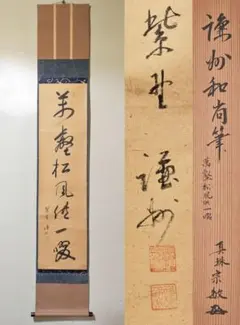 萬壑松風供一啜
紫野謙州
謙州和尚筆
萬壑松風供一啜
真珠宗敏